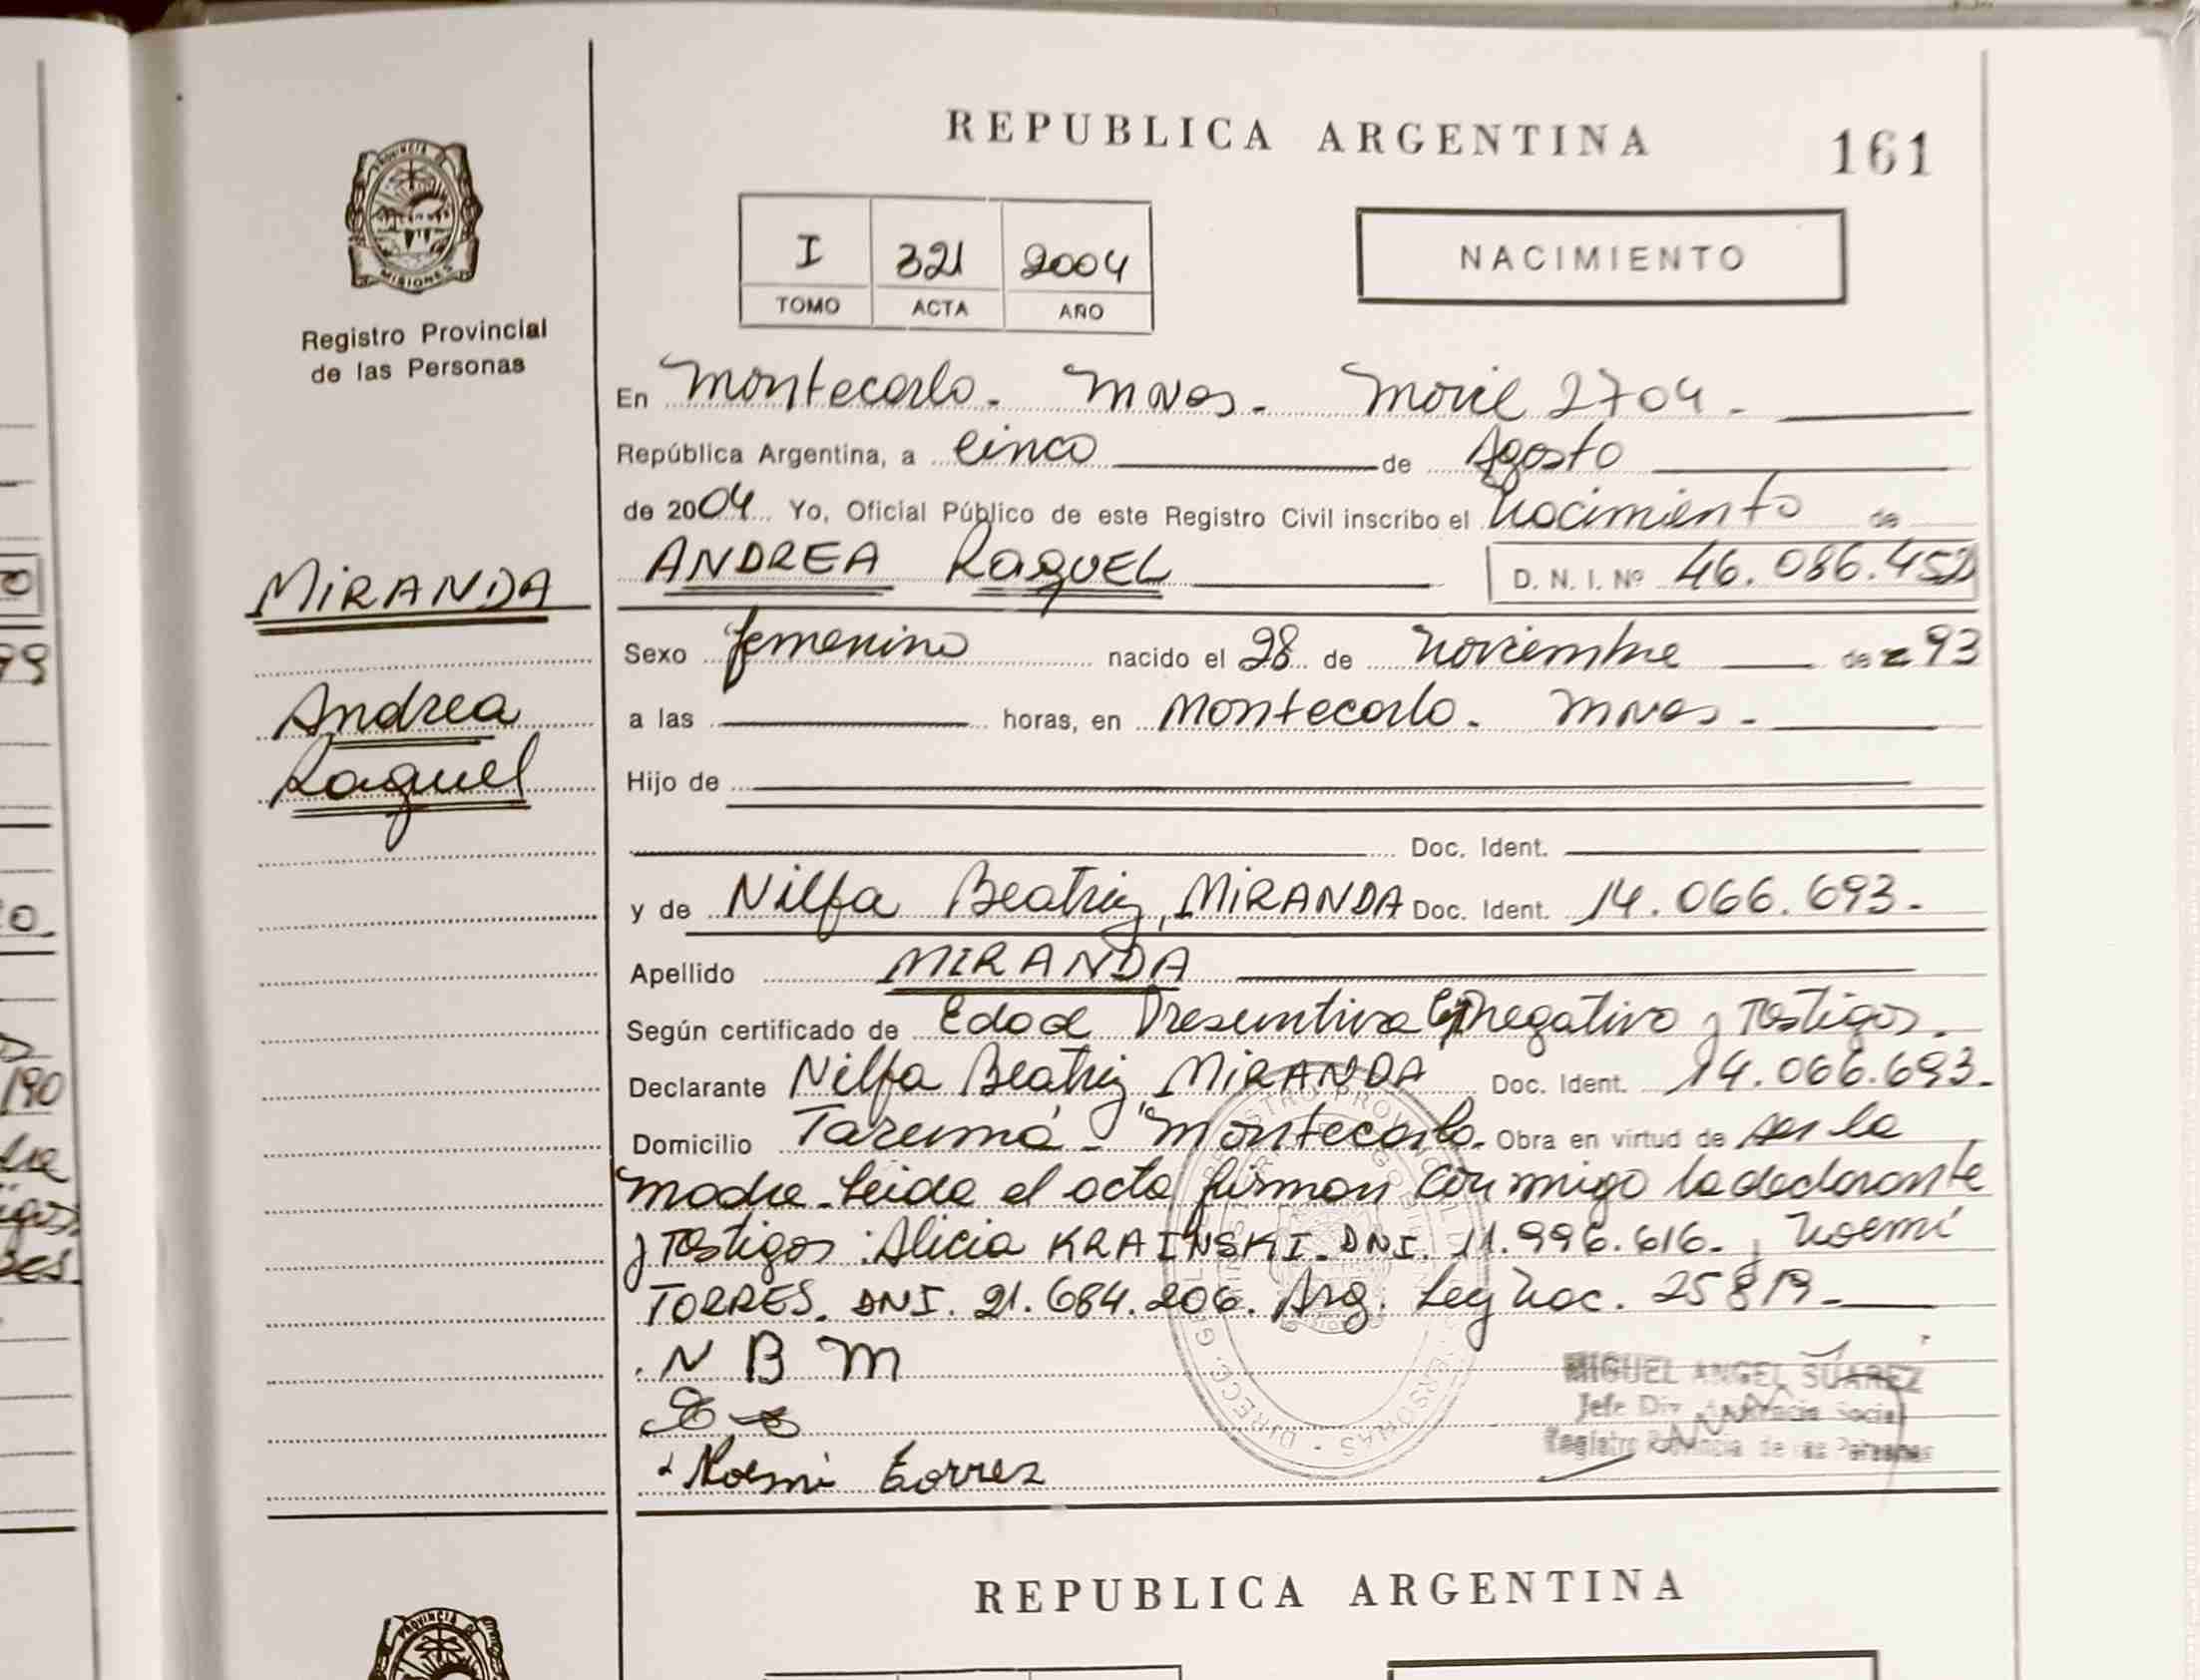 REPUBLICA ARGENTINA
161
PROVINCIA DE
MISIONES
Registro Provincial
de las Personas
I 321 2004
TOMO ACTA AÑO
NACIMIENTO
En Montecarlo. Mnes. Movil 2704.
República Argentina, a cinco de Agosto
de 2004 Yo, Oficial Público de este Registro Civil inscribo el Nacimiento de
MIRANDA
ANDREA RaqUEL D. N. I. Nº 46.086.452
Sexo femenino nacido el 28 de Noviembre de 93
Andrea
a las horas, en Montecarlo. Mnes.
Raquel
Hijo de
Doc. Ident.
y de Nilfa Beatriz, MIRANDA Doc. Ident. 14.066.693.
Apellido MIRANDA
Según certificado de Edad Presuntiva negativo y Testigos.
Declarante Nilfa Beatriz MIRANDA Doc. Ident. 14.066.693.
Domicilio Tarumá - Montecarlo. Obra en virtud de ser la
madre. Leida el acta firman conmigo la declarante
y Testigos: Alicia KRAINSKI. DNI. 11.996.616. y Noemí
TORRES. DNI. 21.684.206. Arg. Ley Nac. 25819.
N B M
MIGUEL ANGEL SUAREZ
Jefe Div. Social
Registro Provincial de las Personas
Noemi Torrez
REPUBLICA ARGENTINA
PROVINCIA DE